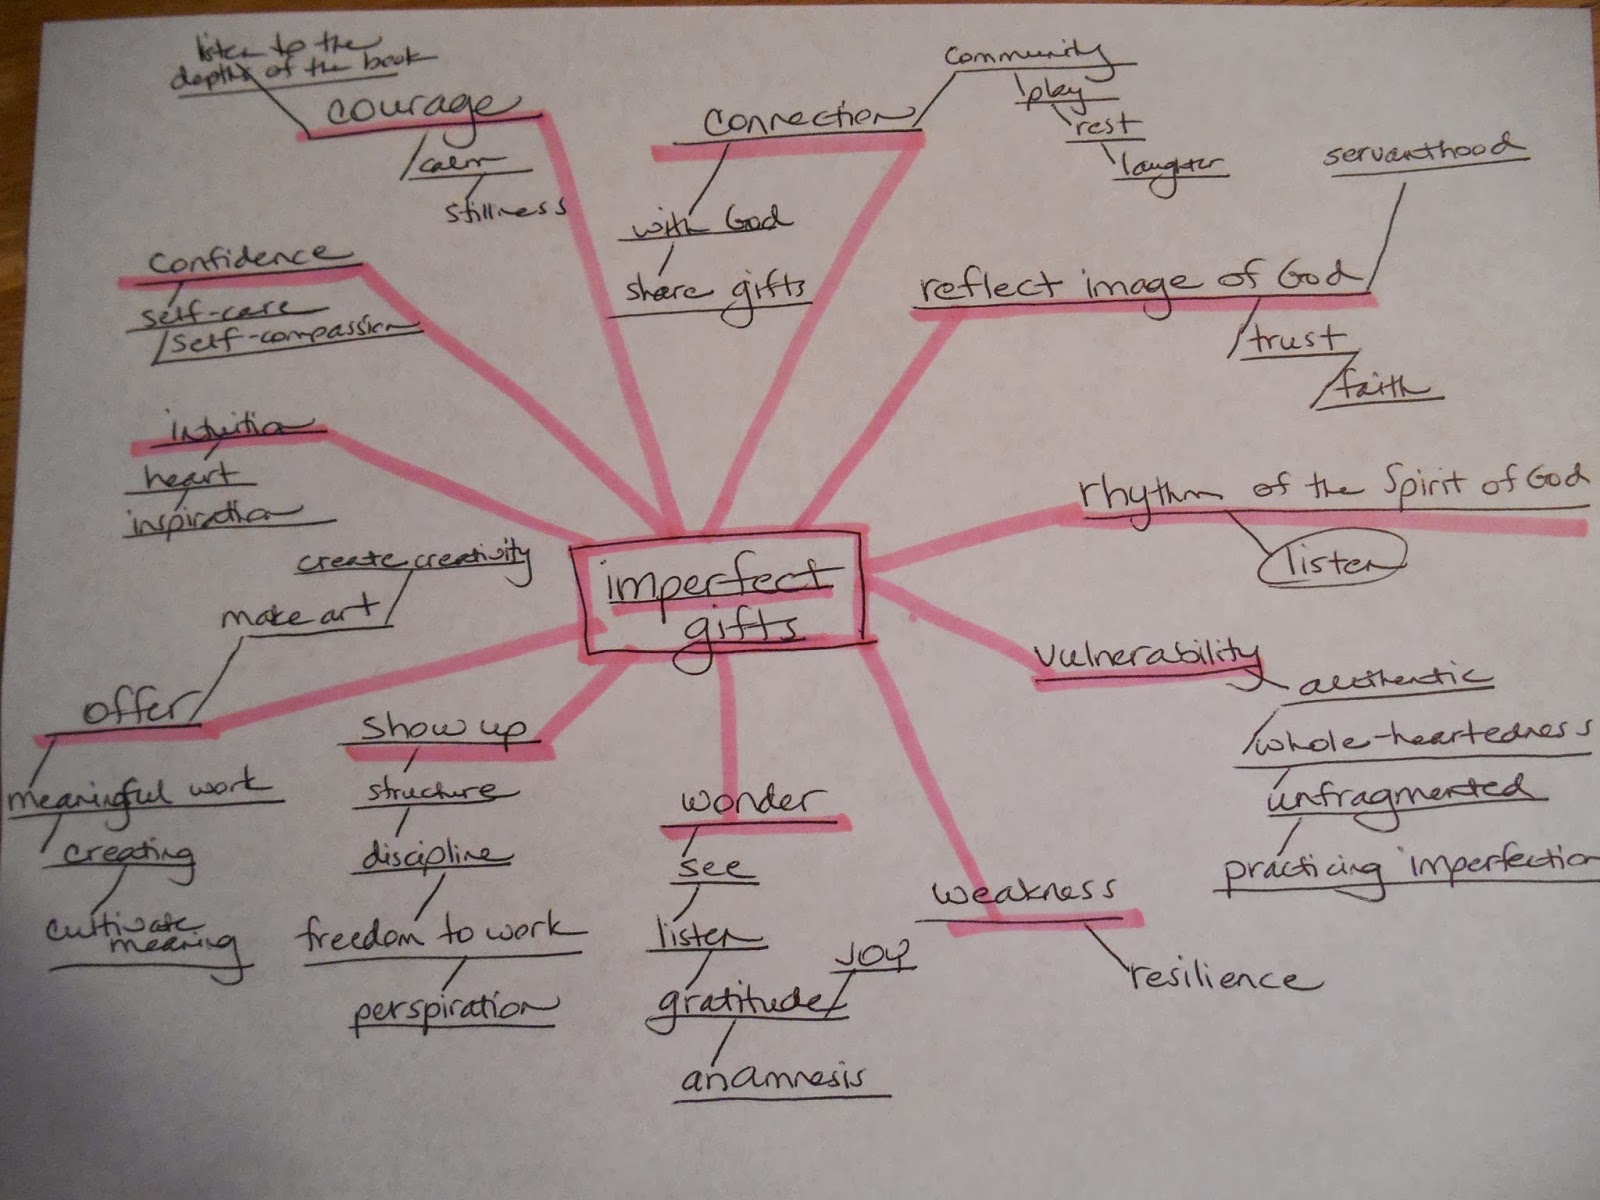 listen to the
depths of the book
courage
calm
stillness
connection
community
play
rest
laughter
with God
share gifts
servanthood
reflect image of God
trust
faith
confidence
self-care
self-compassion
intuition
heart
inspiration
rhythm of the Spirit of God
listen
imperfect
gifts
create creativity
make art
offer
meaningful work
creating
cultivate
meaning
show up
structure
discipline
freedom to work
perspiration
wonder
see
listen
gratitude
JOY
anamnesis
vulnerability
authentic
whole-heartedness
unfragmented
practicing imperfection
weakness
resilience